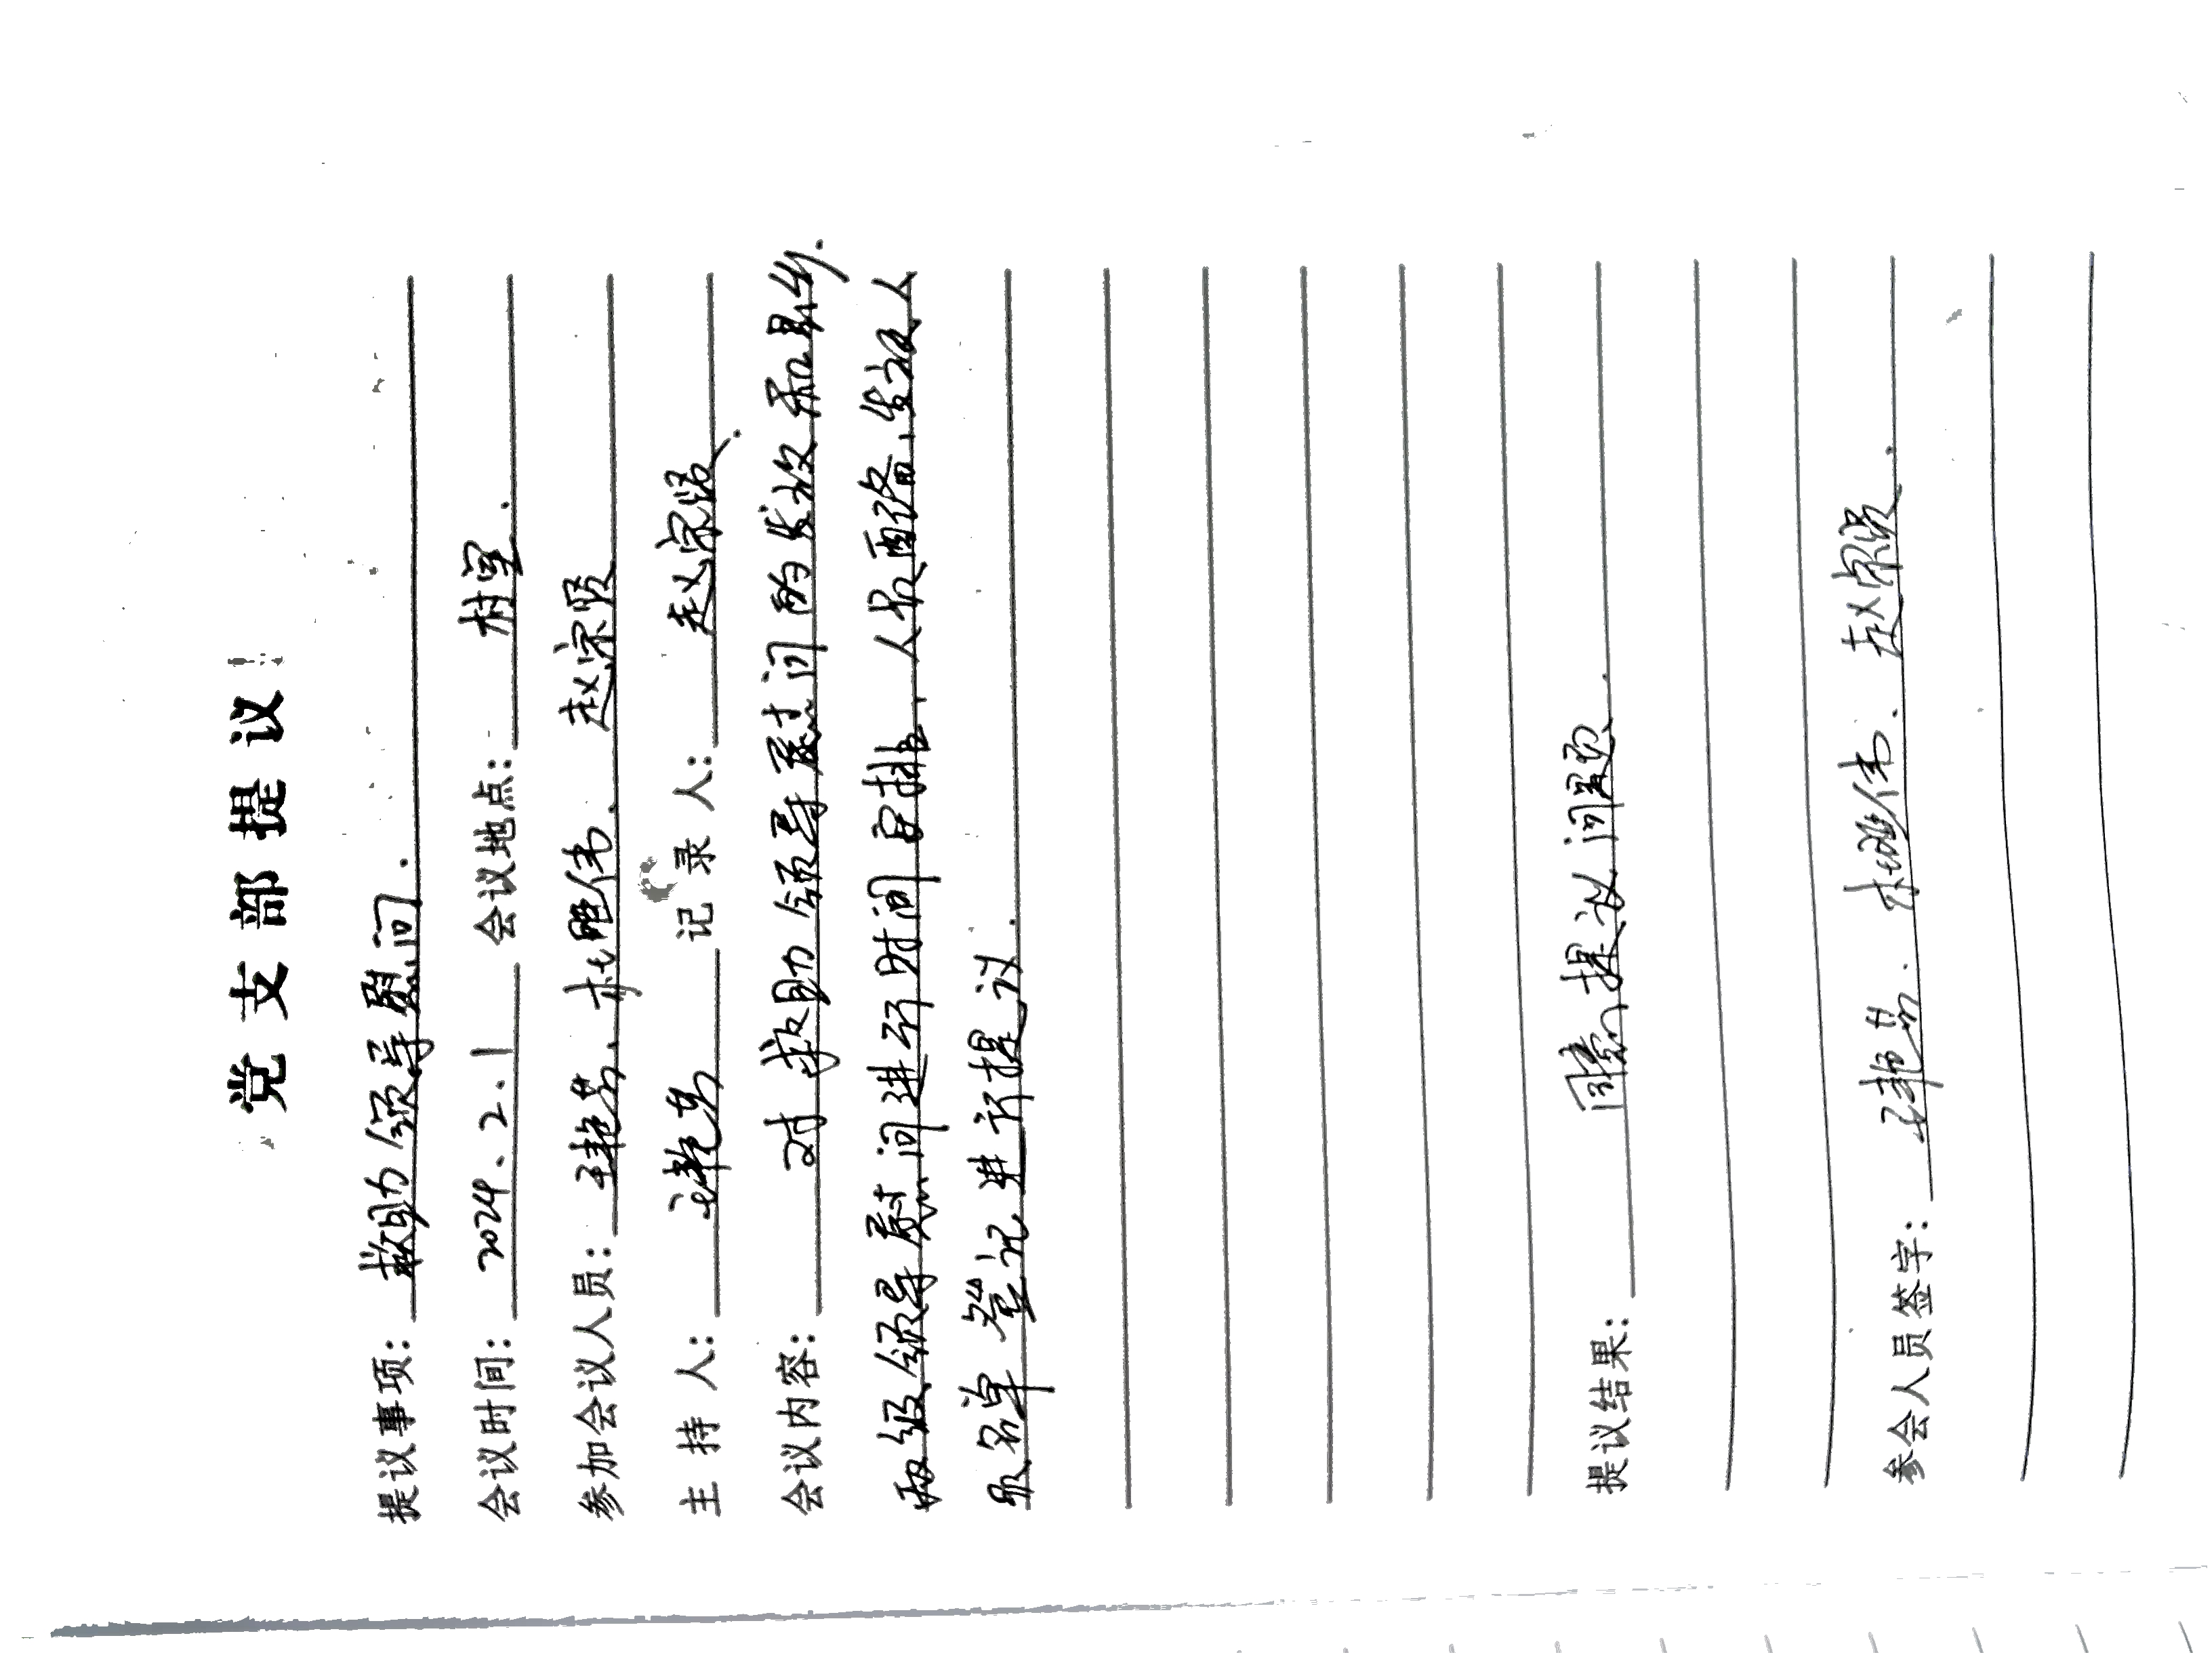 党支部提议
提议事项: 救助领导慰问.
会议时间: 2024.2.1 会议地点: 村室.
参加会议人员: 王艳芳、杜胜伟、赵宗贤
主持人: 王艳芳 记录人: 赵宗贤.
会议内容: 对救助领导慰问的发放和县乡.
两级领导慰问进行时间安排,人员配备,发放人
员名单登记进行提议.
提议结果: 同意提议问题.
参会人员签字: 王艳芳. 杜胜伟. 赵宗贤.